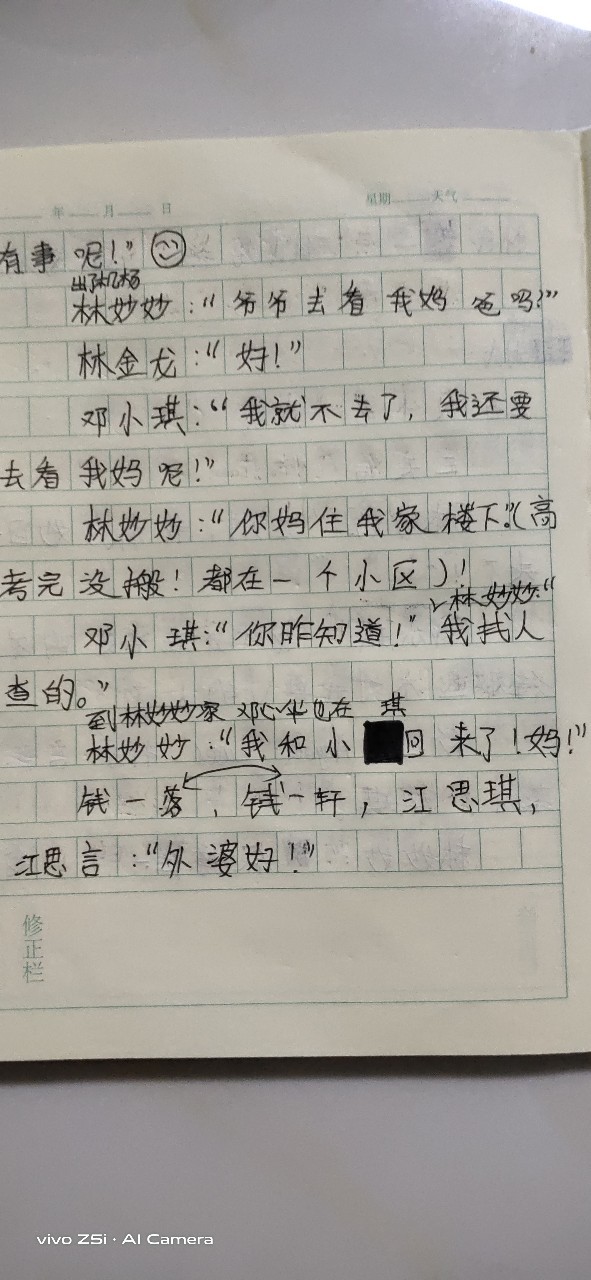 年 月 日 星期 天气
有事呢！”
出了机场
林妙妙：“爷爷去看我妈爸吗？”
林金龙：“好！”
邓小琪：“我就不去了，我还要
去看我妈呢！”
林妙妙：“你妈住我家楼下。”（高
考完没搬！都在一个小区）！
林妙妙：“
邓小琪：“你咋知道！” 我找人
查的。”
到林妙妙家 邓心华也在 琪
林妙妙：“我和小回来了！妈！”
钱一落，钱一轩，江思琪，
江思言：“外婆好！”
修正栏
vivo Z5i · AI Camera